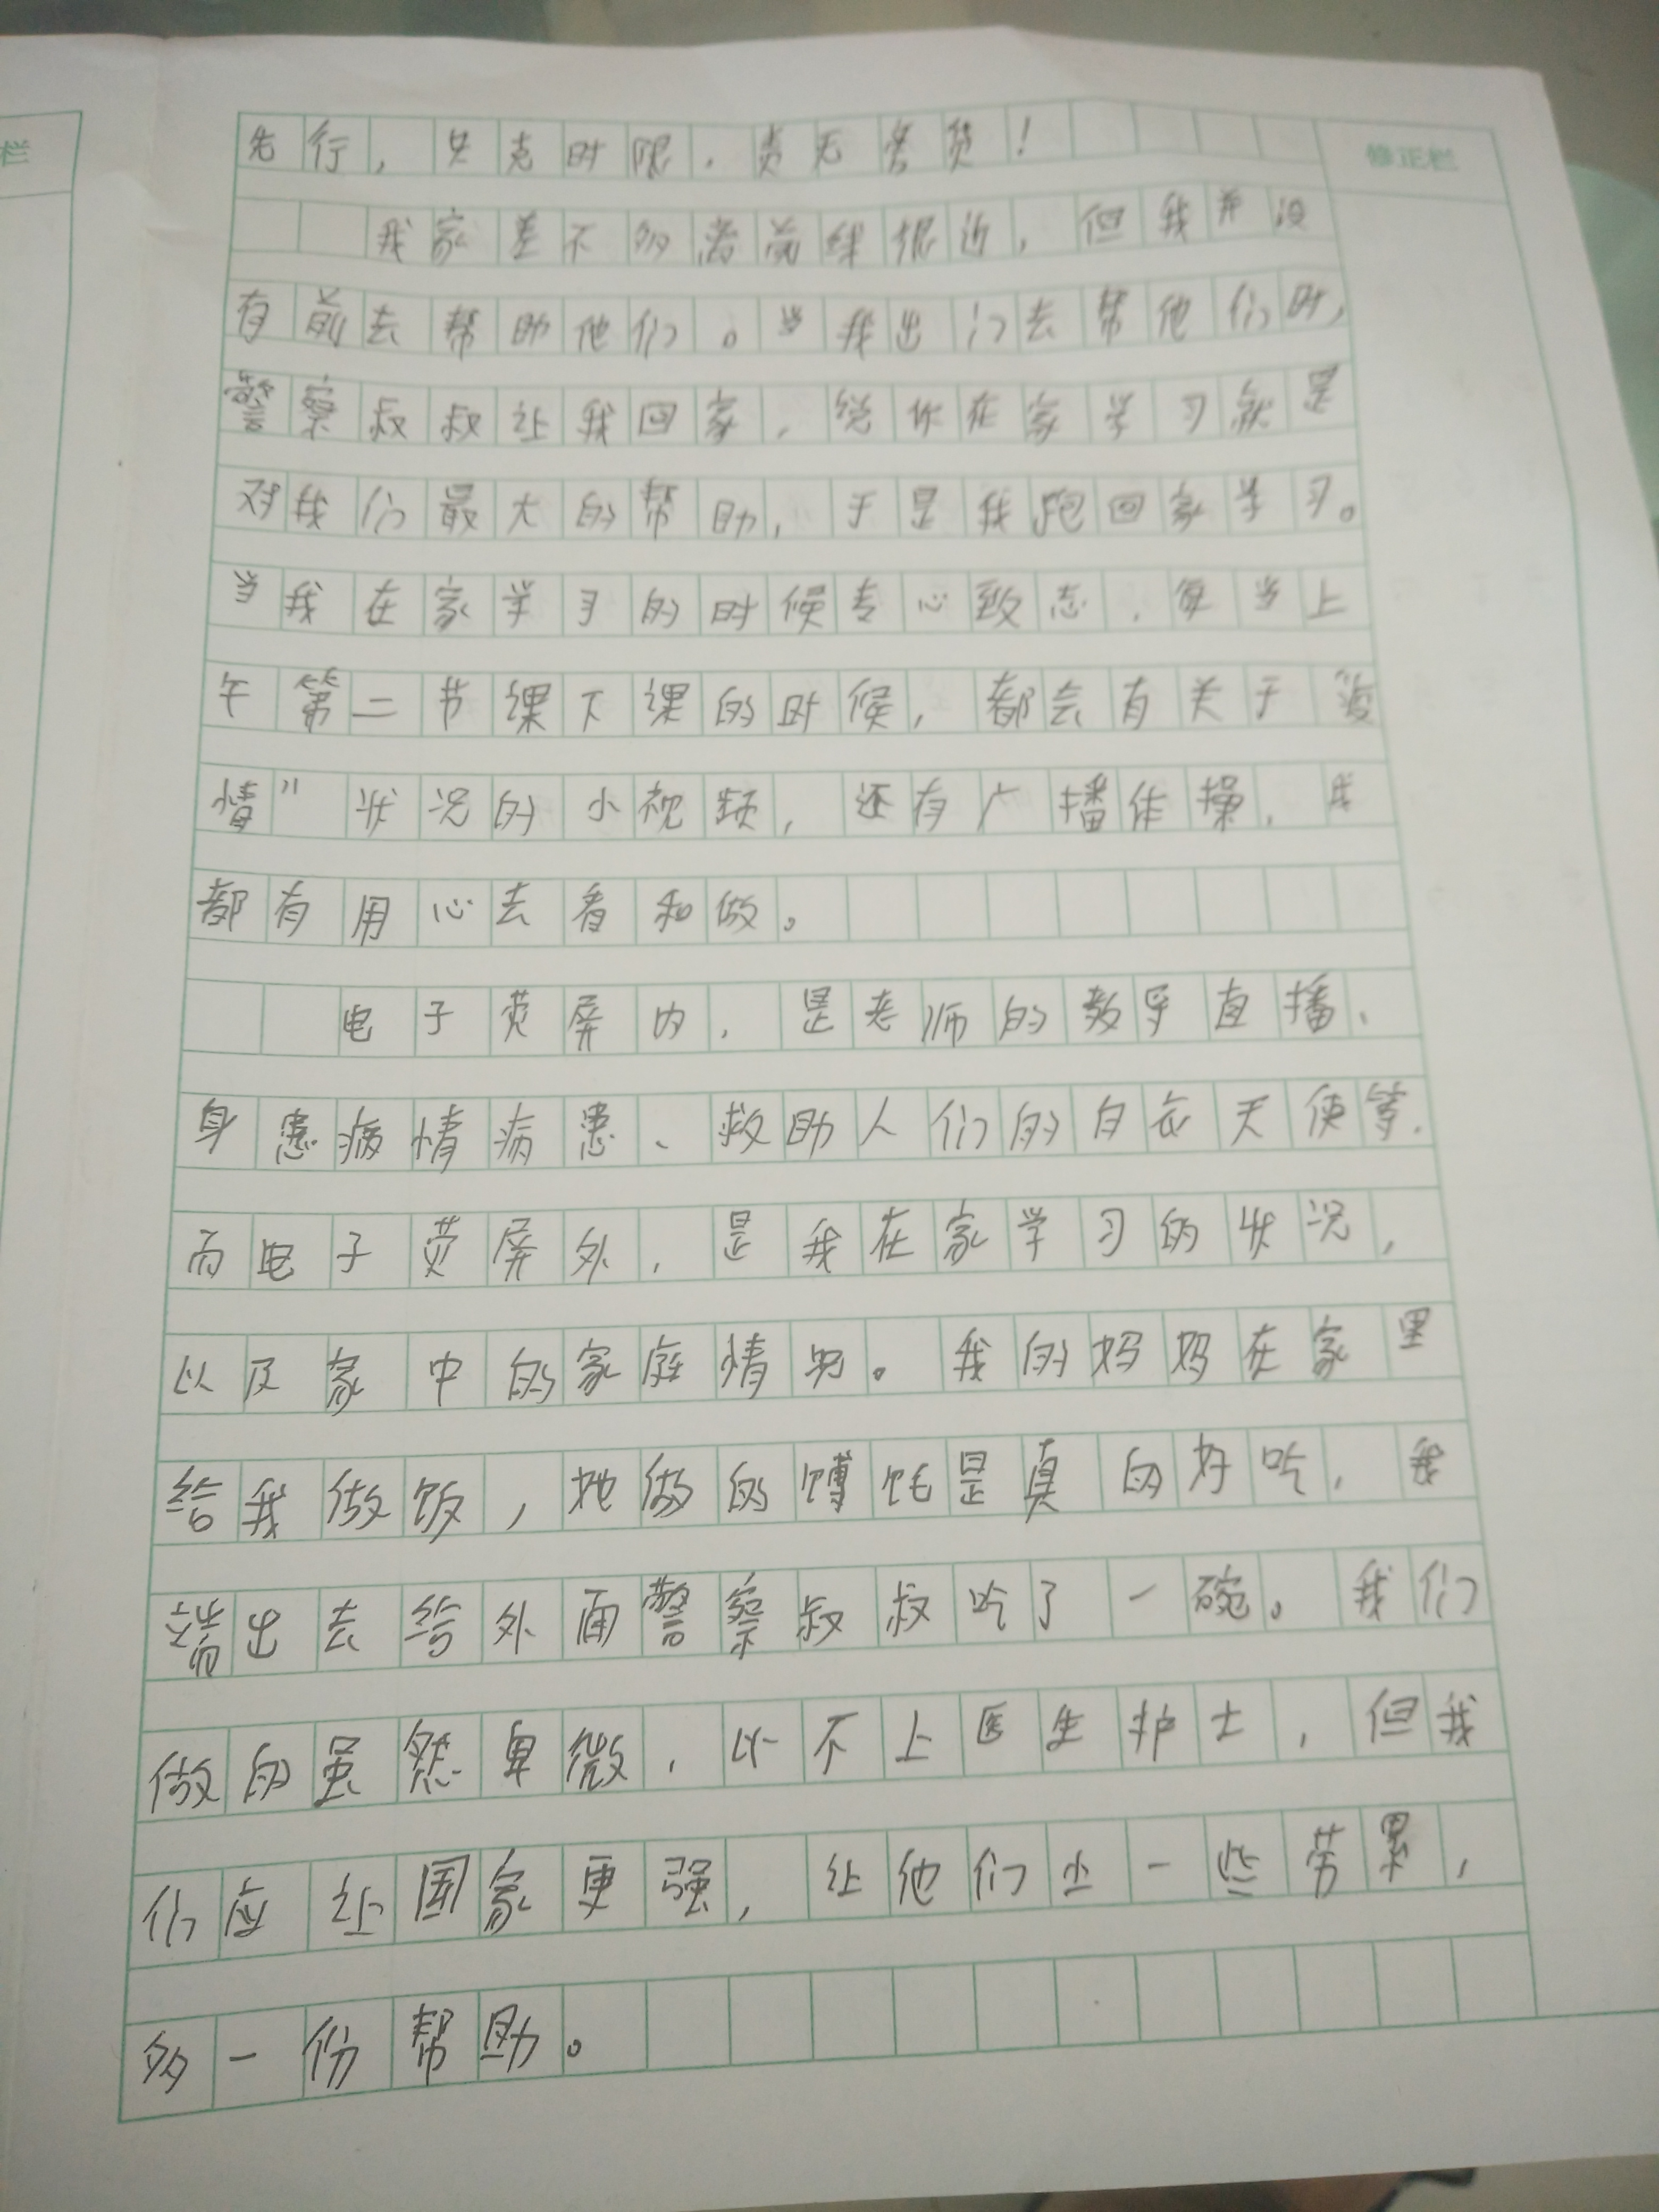 先行，只克时限，责无旁贷！
修正栏
栏
我家差不多离前线很近，但我并没
有前去帮助他们。当我出门去帮他们时，
警察叔叔让我回家，说你在家学习就是
对我们最大的帮助，于是我跑回家学习。
当我在家学习的时候专心致志，每当上
午第二节课下课的时候，都会有关于“疫
情”状况的小视频，还有广播体操，我
都有用心去看和做。
电子荧屏内，是老师的教学直播、
身患病情病患、救助人们的白衣天使等，
而电子荧屏外，是我在家学习的状况，
以及家中的家庭情况。我的妈妈在家里
给我做饭，她做的馎饨是真的好吃，我
端出去给外面警察叔叔吃了一碗。我们
做的虽然卑微，比不上医生护士，但我
们应让国家更强，让他们少一些劳累，
多一份帮助。